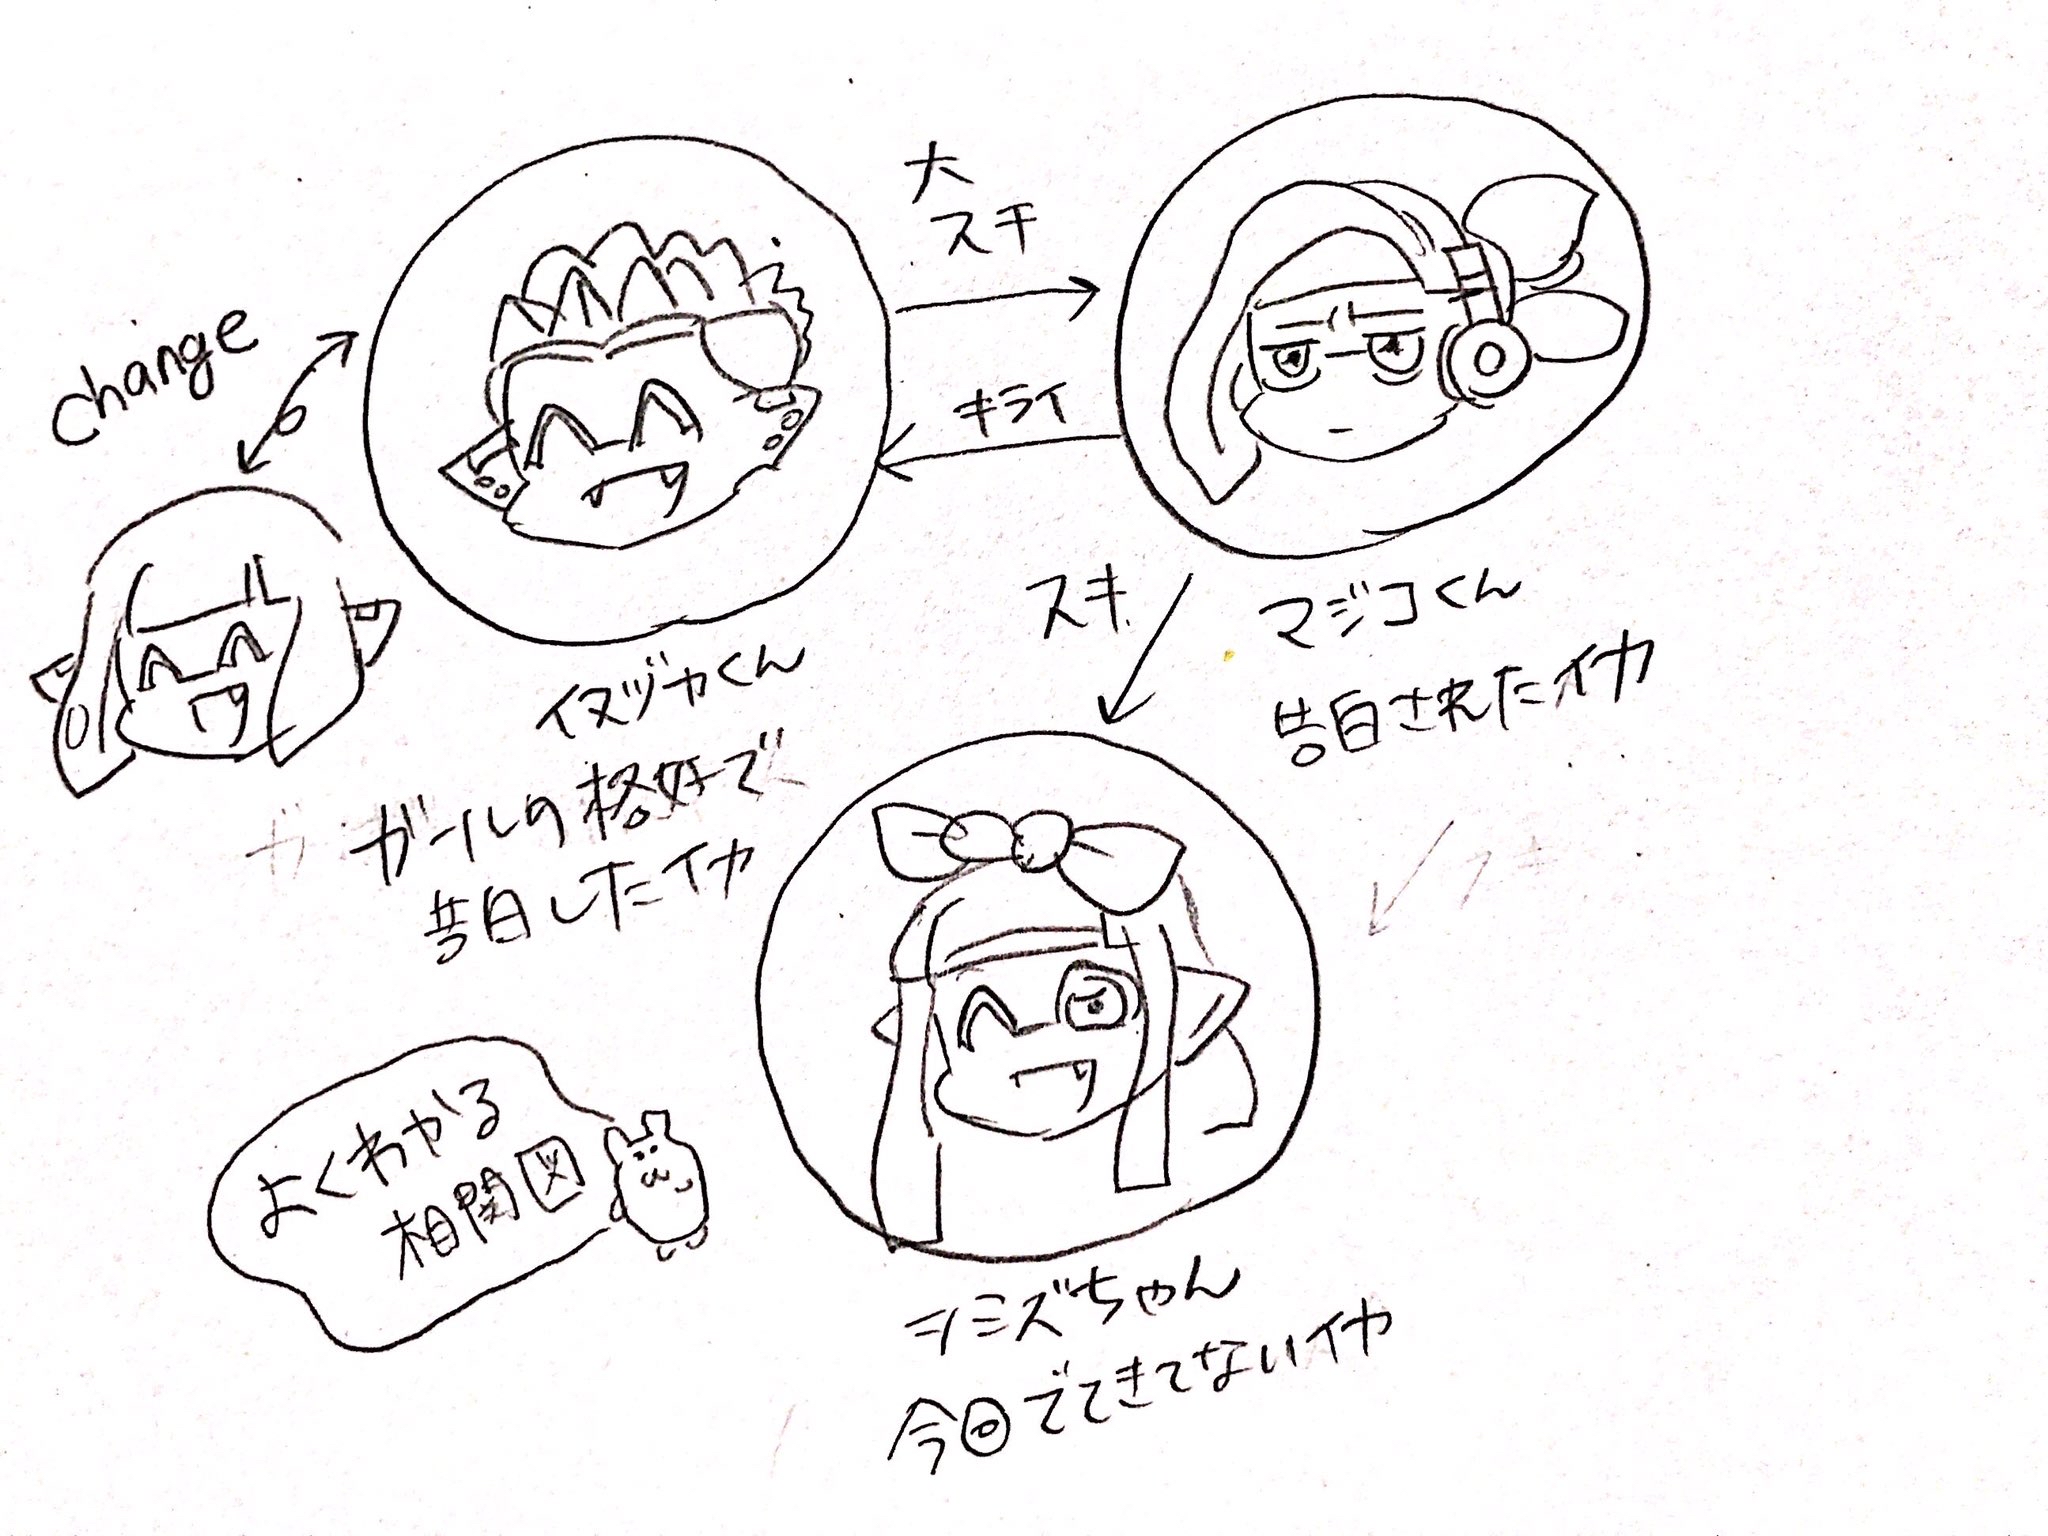 change
大
スキ
キライ
スキ
イヌヅカくん
ガールの格好で
告白したイカ
マジコくん
告白されたイカ
シミズちゃん
今回でてきてないイカ
よくわかる
相関図